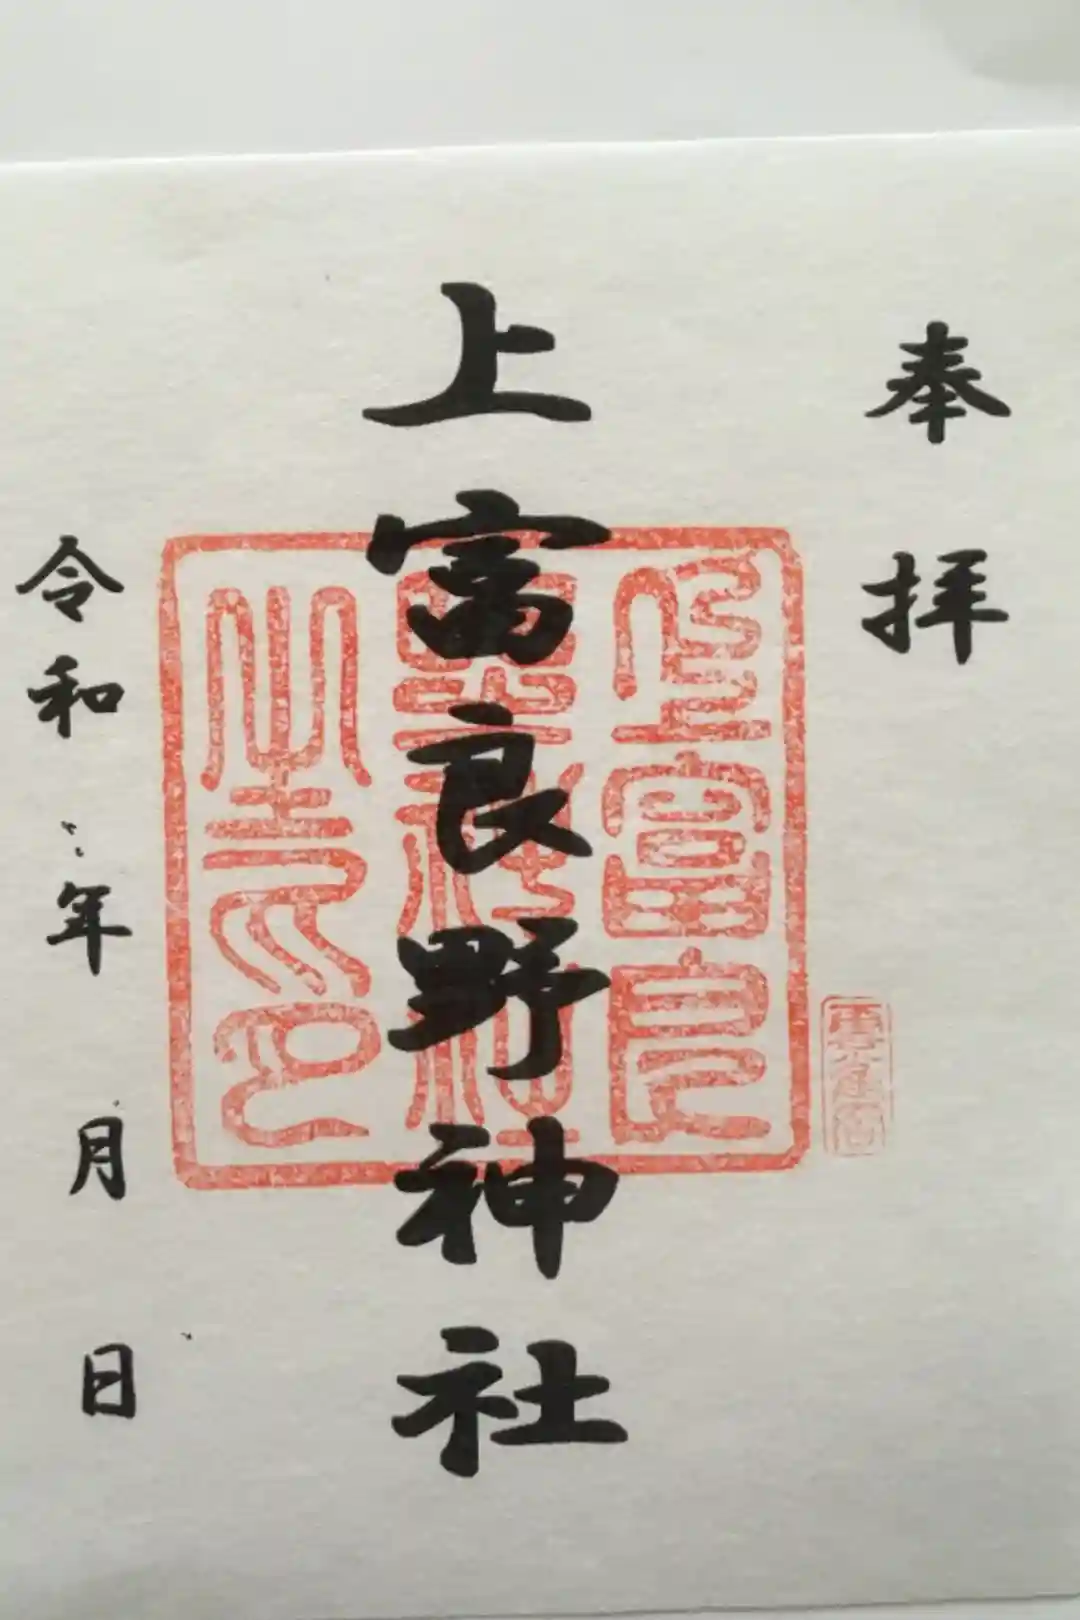 奉拝
上富良野神社
令和 年 月 日
上富良
野神社
之印